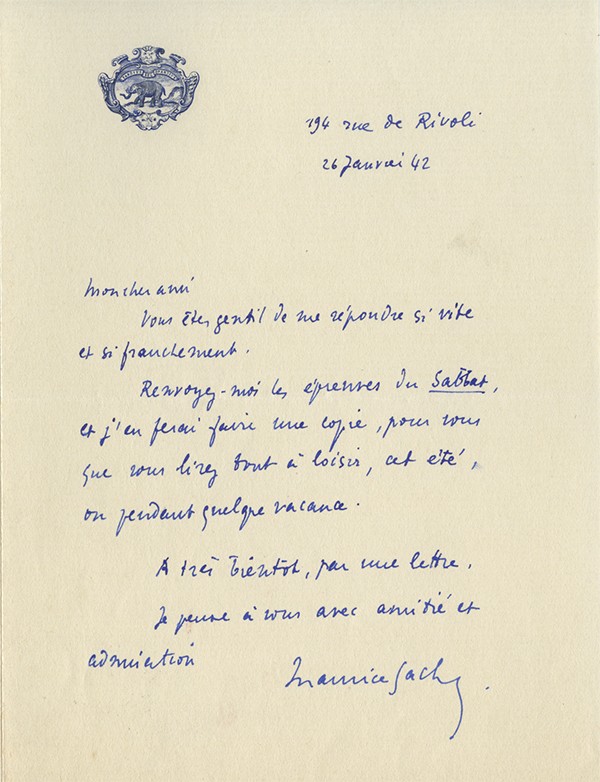 194 rue de Rivoli
26 Janvier 42
Mon cher ami
Vous êtes gentil de me répondre si vite
et si franchement.
Renvoyez-moi les épreuves du Sabbat,
et j'en ferai faire une copie, pour vous
que vous lirez tout à loisir, cet été,
ou pendant quelque vacance.
A très bientôt, par une lettre.
Je pense à vous avec amitié et
admiration
Maurice Sachs